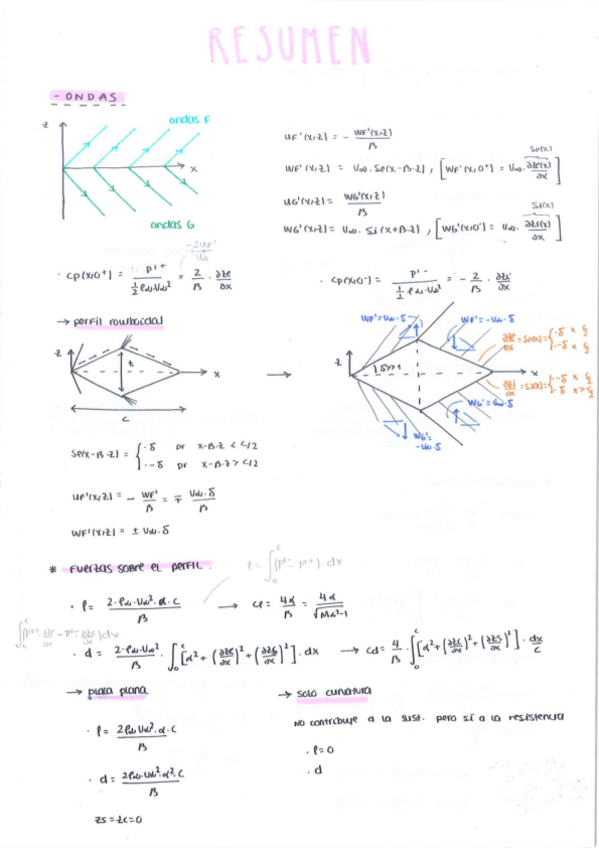 RESUMEN
- ONDAS
z
ondas F
x
ondas G
uF'(x,z) = - WF'(x,z) / β
WF'(x,z) = U∞ · Se(x-β·z) , [WF'(x,0⁺) = U∞ · ∂ze(x)/∂x]
Se(x)
uG'(x,z) = WG'(x,z) / β
WG'(x,z) = U∞ · Si(x+β·z) , [WG'(x,0⁻) = U∞ · ∂zi(x)/∂x]
Si(x)
· Cp(x,0⁺) = p'⁺ / ½ ρ∞·U∞² = 2/β · ∂ze/∂x
-2uF' / U∞
· Cp(x,0⁻) = p'⁻ / ½ ρ∞·U∞² = - 2/β · ∂zi/∂x
→ perfil romboidal
z
t
x
c
→
WF'=U∞·δ
WF'=-U∞·δ
z
x
∂ze/∂x = Se(x) = { ·δ x < c/2
·-δ x > c/2
∂zi/∂x = Si(x) = { ·-δ x < c/2
·δ x > c/2
WG'=U∞·δ
WG'=
-U∞·δ
Se(x-β·z) = { ·δ por x-β·z < c/2
·-δ por x-β·z > c/2
uF'(x,z) = - WF'/β = ∓ U∞·δ/β
WF'(x,z) = ± U∞·δ
* FUERZAS SOBRE EL PERFIL.
l = ∫₀ᶜ (p'⁻ - p'⁺)·dx
· l = 2·ρ∞·U∞²·α·c / β → cl = 4α/β = 4α/√(M∞²-1)
· d = 2·ρ∞·U∞² / β · ∫₀ᶜ [α² + (∂zc/∂x)² + (∂zs/∂x)²]·dx → cd = 4/β · ∫₀ᶜ [α² + (∂zc/∂x)² + (∂zs/∂x)²]· dx/c
→ placa plana
· l = 2ρ∞U∞²·α·c / β
· d = 2ρ∞·U∞²·α²·c / β
zs=zc=0
→ solo curvatura
No contribuye a la sust. pero sí a la resistencia
· l=0
· d